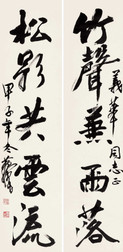 竹聲兼雨落
義華同志正
松影共雲流
甲子年冬